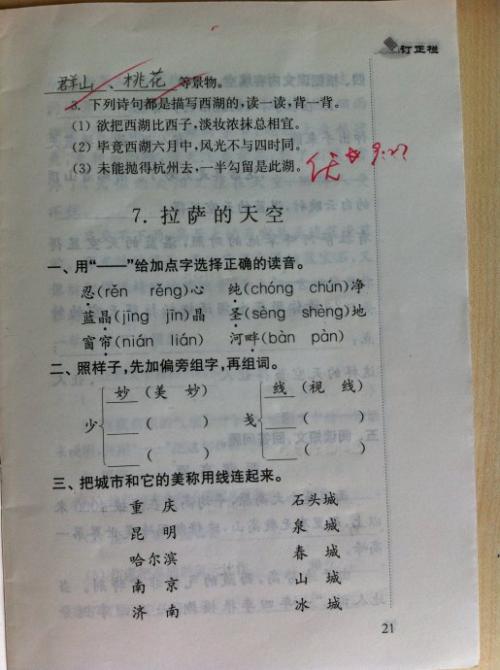 订正栏
群山、桃花等景物。
3. 下列诗句都是描写西湖的,读一读,背一背。
(1) 欲把西湖比西子,淡妆浓抹总相宜。
(2) 毕竟西湖六月中,风光不与四时同。
(3) 未能抛得杭州去,一半勾留是此湖。
9.27
7. 拉萨的天空
一、用“——”给加点字选择正确的读音。
忍(rěn rěng)心 纯(chóng chún)净
蓝晶(jīng jīn)晶 圣(sèng shèng)地
窗帘(nián lián) 河畔(bàn pàn)
二、照样子,先加偏旁组字,再组词。
妙(美 妙) 线(视 线)
少 ( ) 戋 ( )
( ) ( )
三、把城市和它的美称用线连起来。
重 庆 石头城
昆 明 泉 城
哈尔滨 春 城
南 京 山 城
济 南 冰 城
21